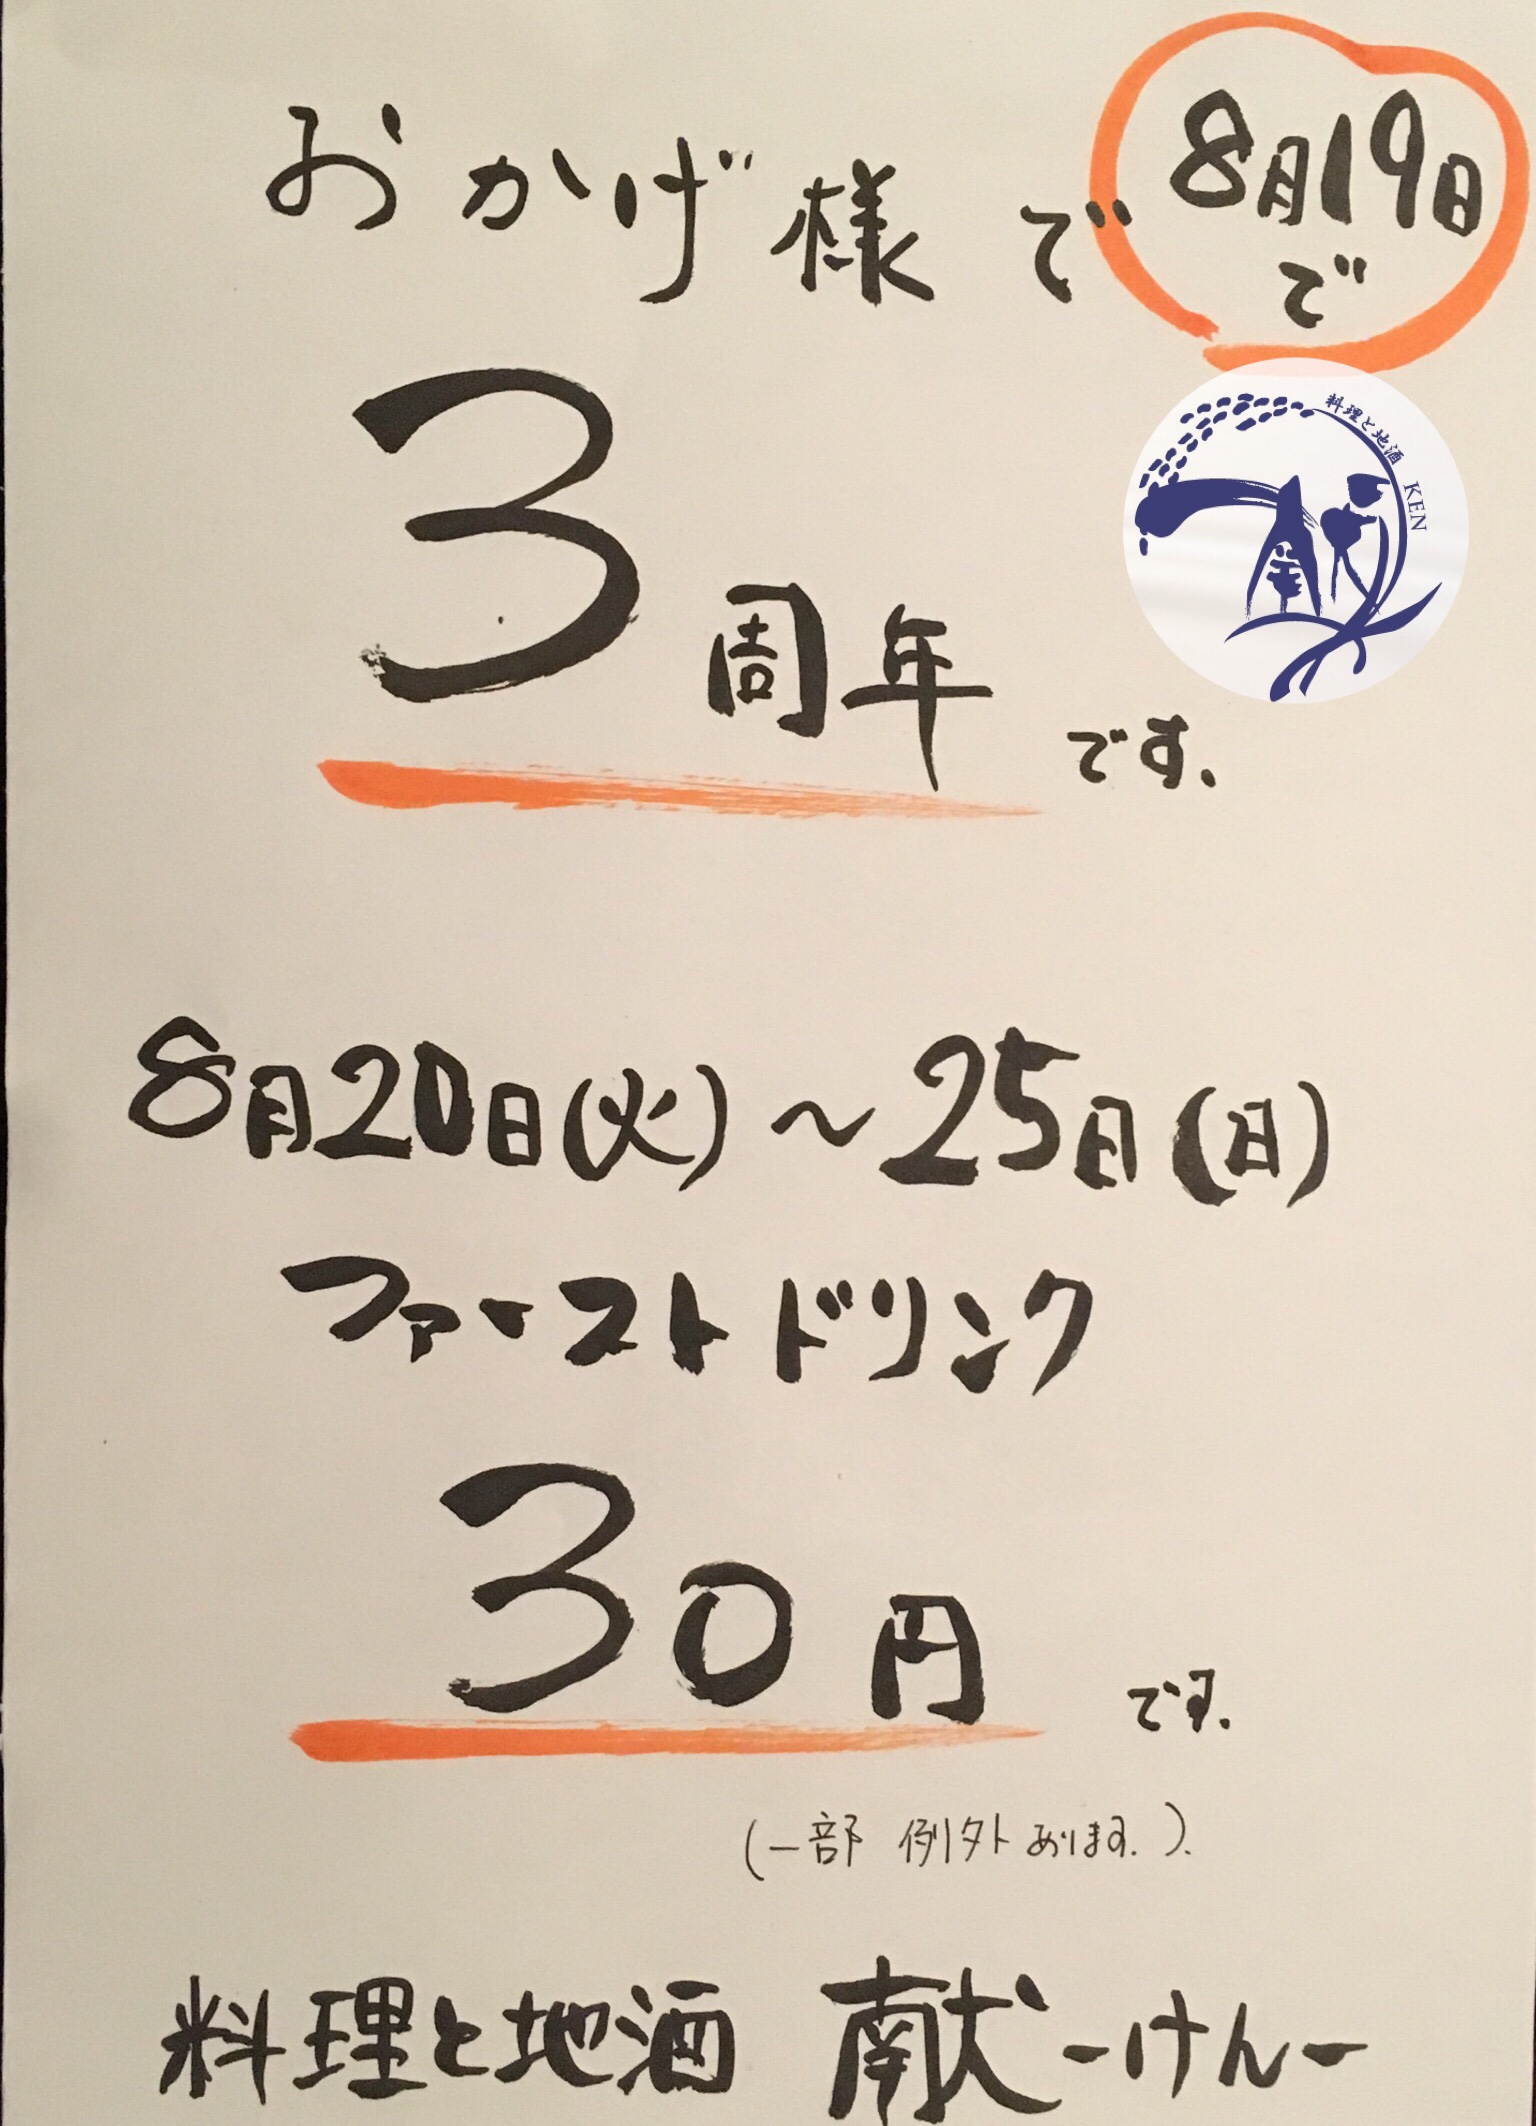 おかげ様で
8月19日
で
3周年です.
料理と地酒 KEN
献
8月20日(火)～25日(日)
ファーストドリンク
30円です.
(一部 例外あります.).
料理と地酒 献-けん-